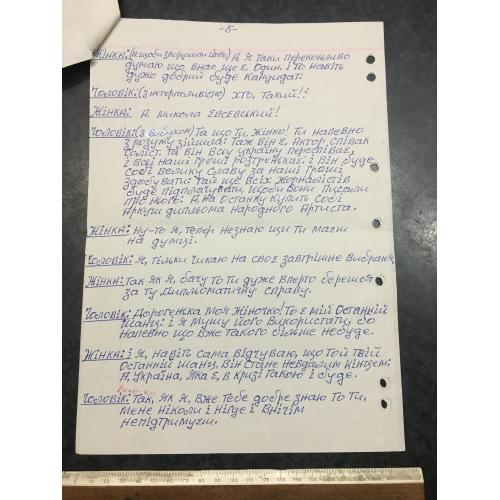 -5-
Жінка: (Нащоби зворушити його) А, Я Таки переконливо
думаю що внас ще є один. і то навіть
дуже добрий буде кандидат.
Чоловік: (з нетерпеливістю) Хто, Такий!?
Жінка: А. Микола Євсевський!
Чоловік: (з вибухом) Та що Ти Жінко! Ти напевно
з розуму зійшла: Таж він є, Актор співак
Соліст та він всю україну переспіває,
і Всі наші гроші розтренькає: і Він буде
собі Велику Славу за наші Гроші
здобувати: Тай ще всіх Журналістів
буде підплачувати, щоби Вони писали
про його: А, на останку купить собі
Аркуш диплома Народного Артиста.
Жінка: Ну-то Я, Тепер незнаю що ти маєш
на думці.
Чоловік: Я, Тільки чикаю на своє завтрішне Вибрання,
Жінка: Так як я, бачу то Ти дуже Вперто берешся
за ту Дипломатичну справу.
Чоловік: Дорогенька Моя Жіночко! То є мій Останній
Шанц: і я мушу його Використати, бо
напевно що вже такого більше небуде.
Жінка: і Я, навіть сама відчуваю, що Той твій
Останній шанц, він стане невдалим кінцем:
А, Україна, яка є, в кризі такою і буде.
Чоловік: Так, як я, Вже Тебе добре знаю То Ти,
мене Ніколи і Нігде і Внічім
непідтримуєш.